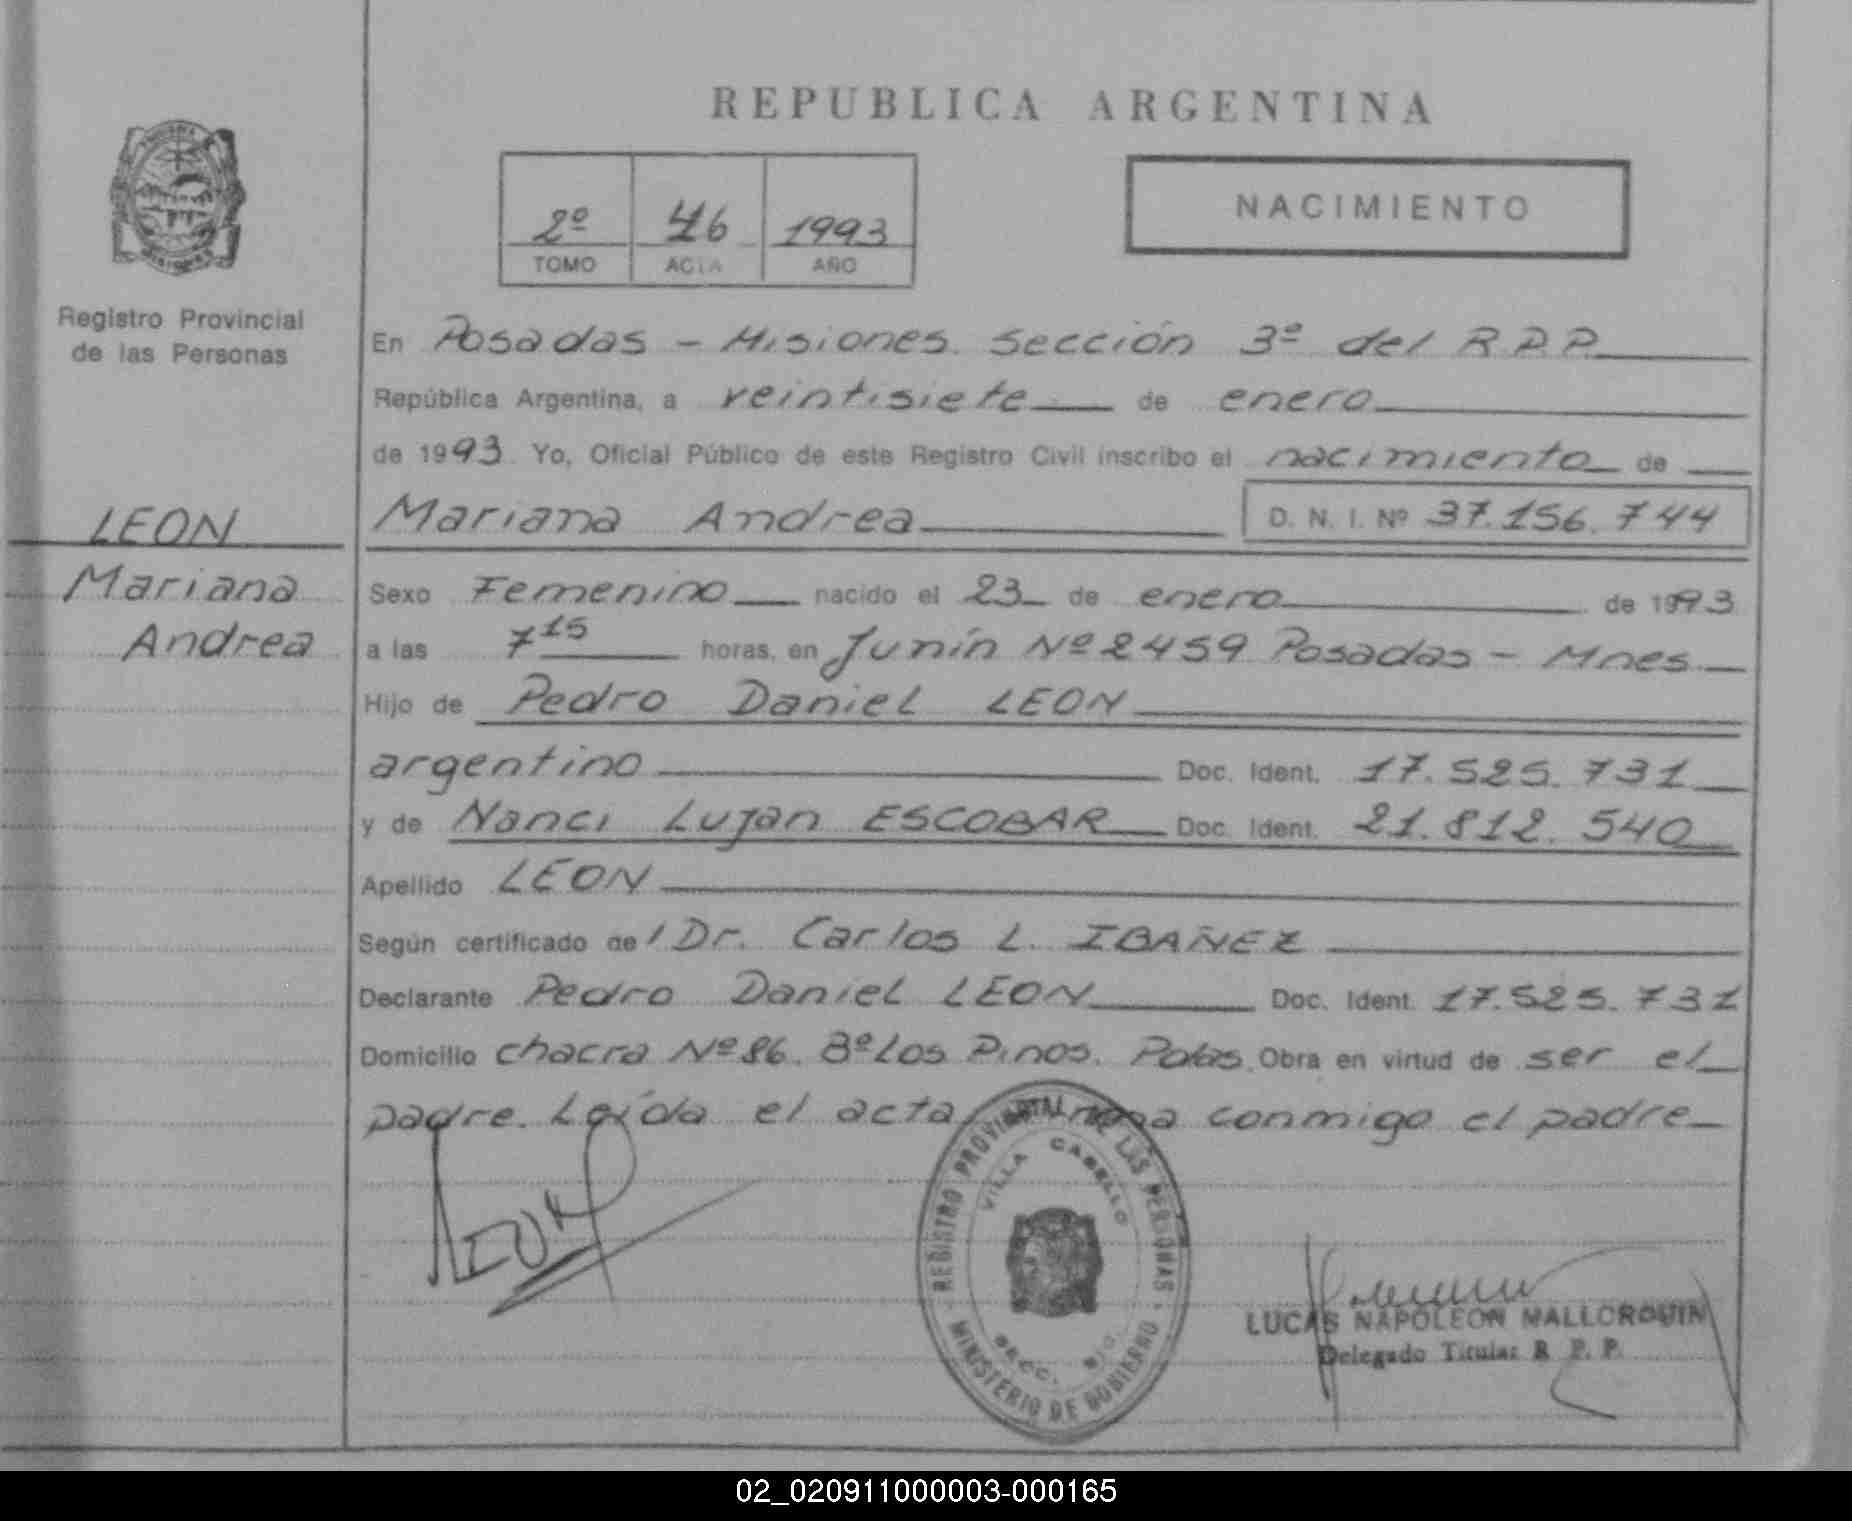 REPUBLICA ARGENTINA
2º 46 1993
TOMO ACTA AÑO
NACIMIENTO
Registro Provincial
de las Personas
LEON
Mariana
Andrea
En Posadas - Misiones. Sección 3º del R.P.P.
República Argentina, a veintisiete de enero
de 1993. Yo, Oficial Público de este Registro Civil inscribo el nacimiento de
Mariana Andrea D. N. I. Nº 37.156.744
Sexo Femenino nacido el 23 de enero de 1993
a las 7 15 horas, en Junín Nº 2459 Posadas - Mnes.
Hijo de Pedro Daniel LEON
argentino Doc. Ident. 17.525.731
y de Nanci Lujan ESCOBAR Doc. Ident. 21.812.540
Apellido LEON
Según certificado de l Dr. Carlos L. IBAÑEZ
Declarante Pedro Daniel LEON Doc. Ident. 17.525.731
Domicilio chacra Nº 86. Bº Los Pinos. Pdas. Obra en virtud de ser el
padre. Leída el acta firma conmigo el padre
LEON
REGISTRO PROVINCIAL DE LAS PERSONAS
VILLA CABELLO
SECC.
MINISTERIO DE GOBIERNO
LUCAS NAPOLEON MALLORQUIN
Delegado Titular R. P. P.
02_020911000003-000165